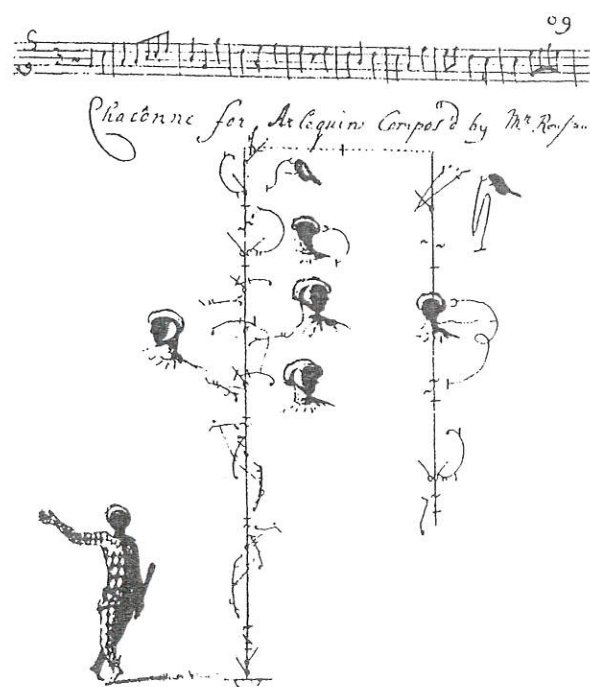 09
Chacoñne for Arlequin Compos'd by Mr. Roussau